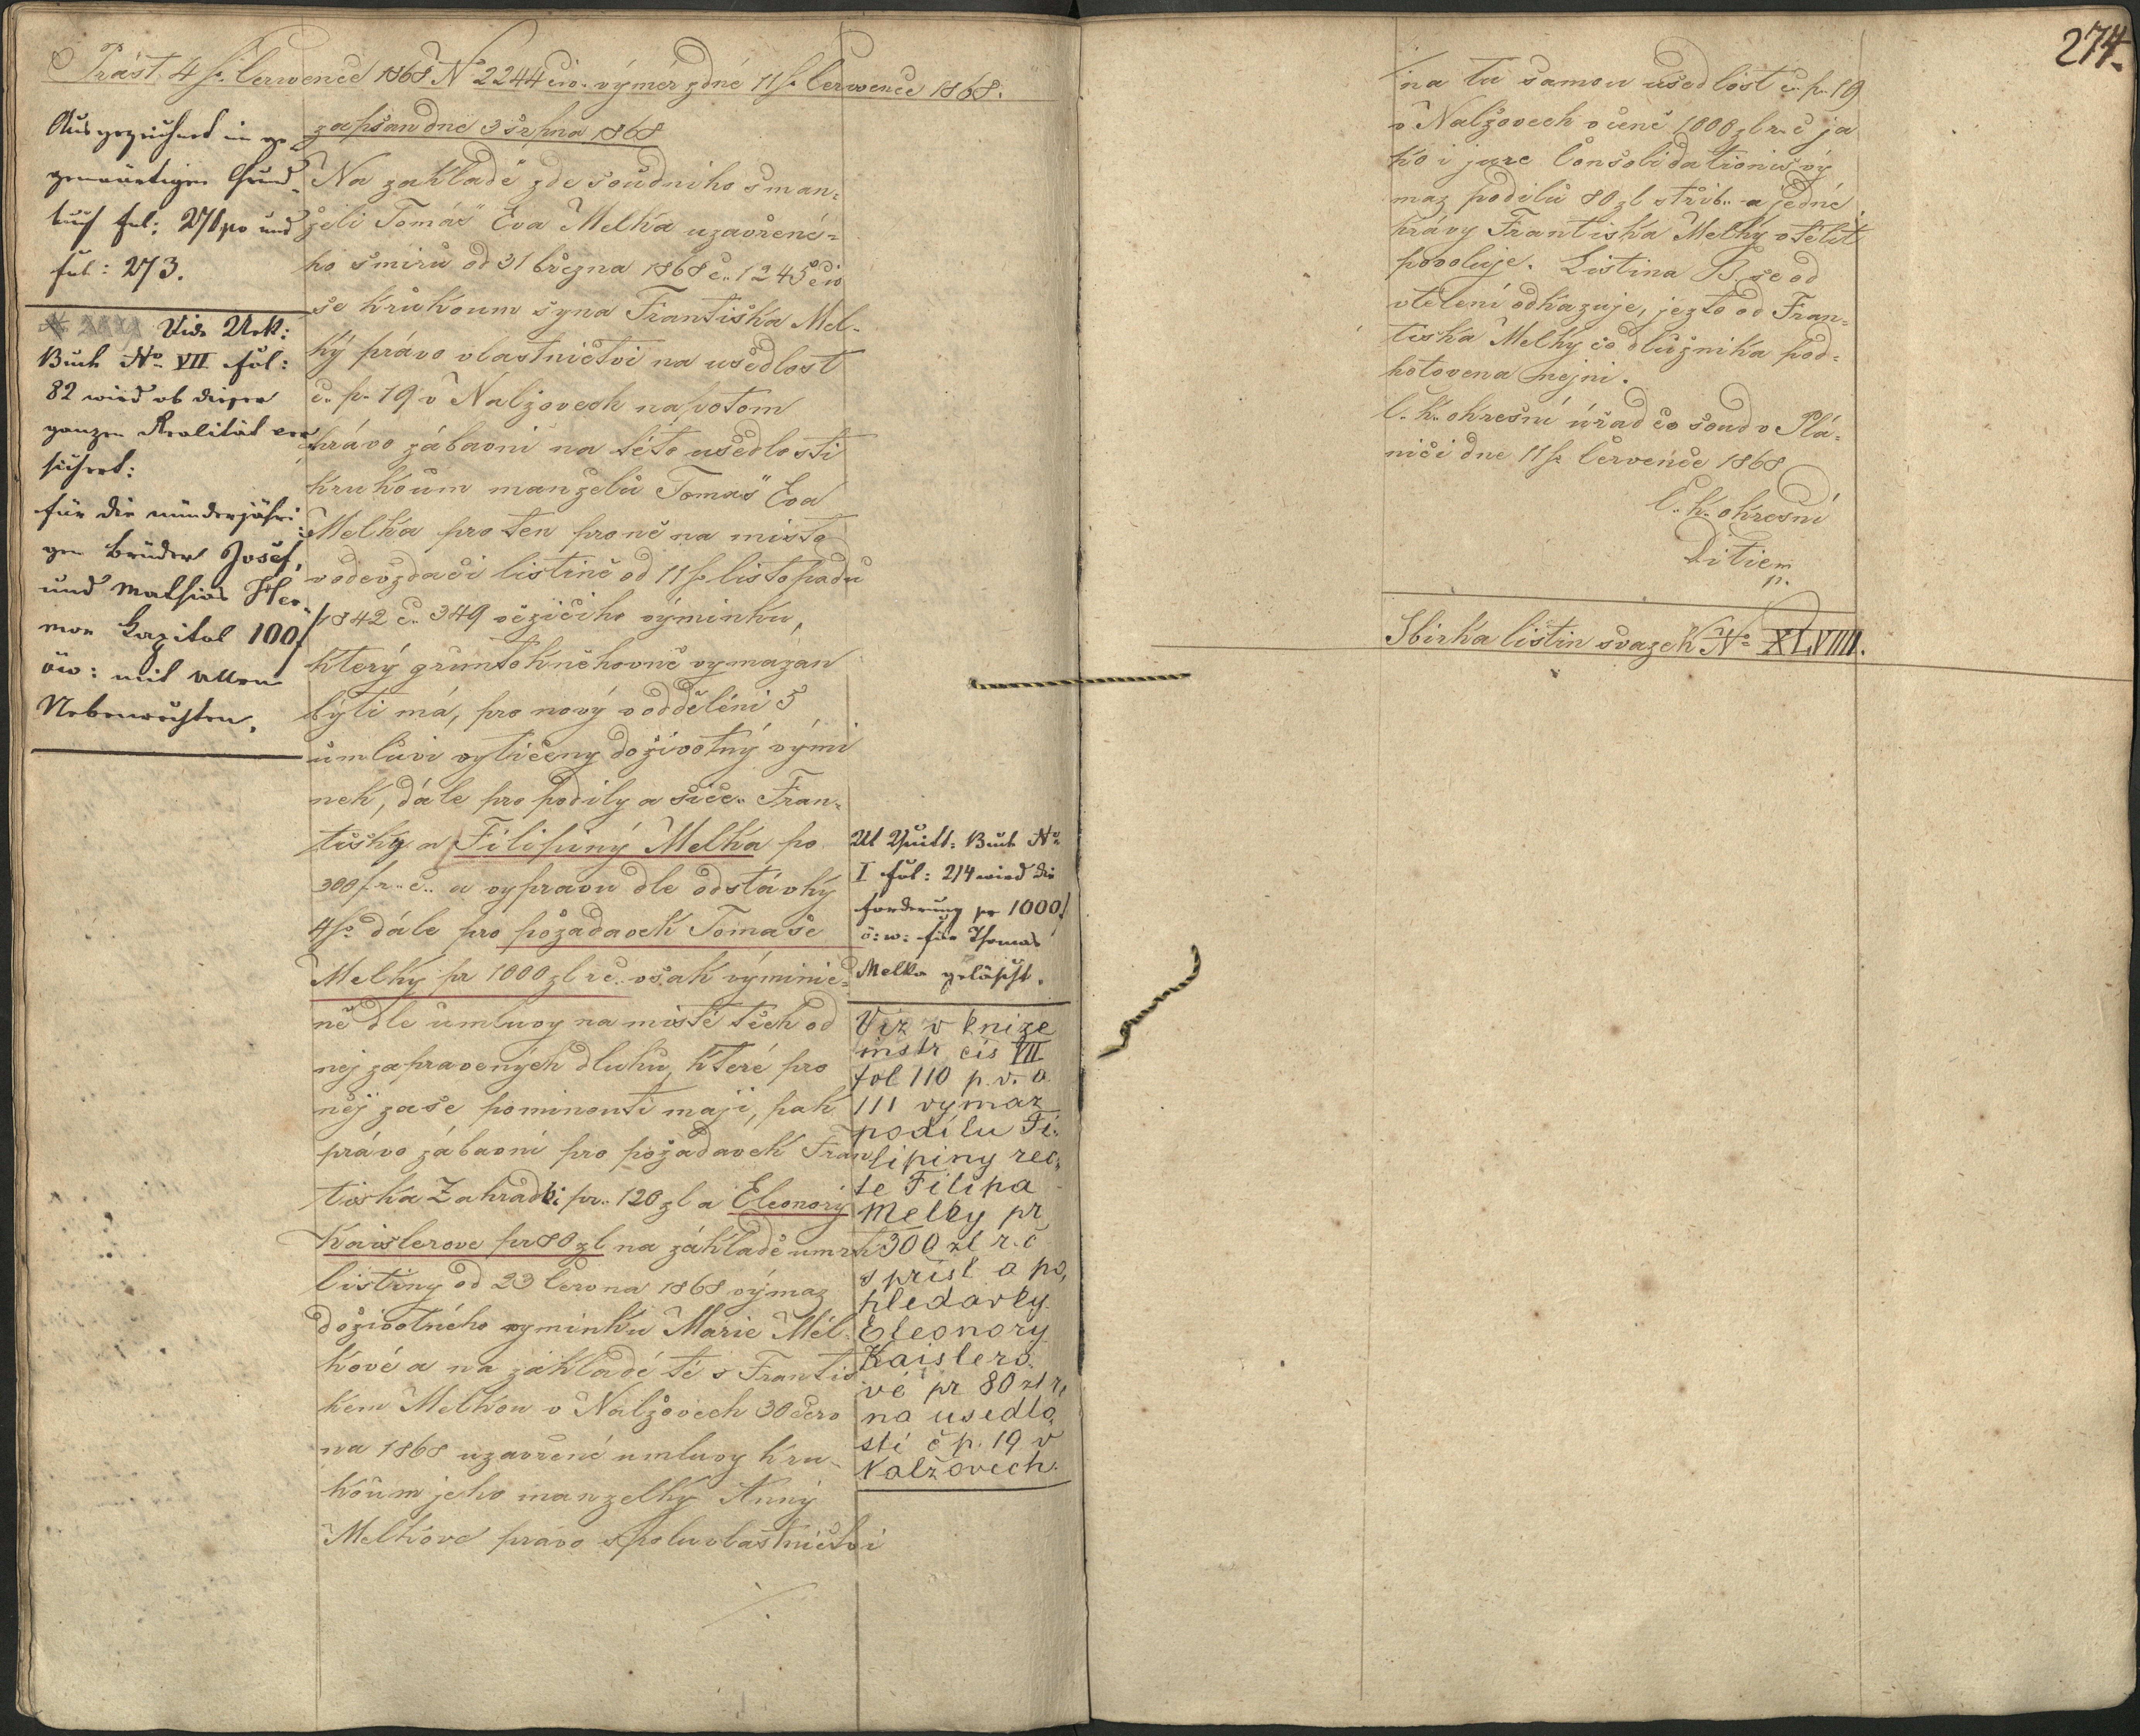 Präst. 4/7. července 1868 No 2244 civ. výměr z dne 11/7. července 1868.
zapsan dne 3 srpna 1868
Ausgezeichnet im ge-
genwärtigen Grund-
buch fol: 271 po und
fol: 273.
Vide Urk:
Buch No. VII fol:
82 wird ob dieser
ganzen Realität ver-
sichert:
für die minderjähri-
gen Brüder Josef,
und Mathias
Kapital 100f
öw: mit allen
Nebenrechten.
Na zakladě zde soudniho s man-
želi Tomáš " Eva Melka uzavřené-
ho smiru od 31 března 1868 č. 1245 civ
se k rukoum syna Františka Mel-
ký právo vlastnictvi na usedlost
č. p. 19 v Nalžovech napotom
právo zábavni na této usedlosti
k rukoum manželů Tomas " Eva
Melka pro ten pro ně na misto
v odevzdaci listině od 11/ listopadu
1842 č. 349 vězicího výminku,
který gruntokněhovně vymazan
býti má, pro nový v oddělění 3
umluvi vytičeny doživotný vými
nek, dále pro podily a sice. Fran-
tišky a Filipiný Melka po
300f r. č. a vypravu dle odstávký
4/ dále pro požadavek Tomaše
Melký pr 1000 zl rč. však výminic-
ně dle umluvy na misté těch od
něj zapravených dluhu, které pro
něj zase pominouti maji, pak
právo zábavní pro požadavek Fran
tiska Zahradki pr. 120 zl a Eleonorý
Kaislerove pr 80 zl na základě umrt
listiny od 23 června 1868 výmaz
doživotného vyminku Marie Mel-
kové a na zakladě té s Frantis
kem Melkou v Nalžovech 30 červ
na 1868 uzavřené umluvy k ru-
koum jeho manzelky Anný
Melkove právo spoluvlastnictvi
Ut Quitt: Buch No
I fol: 214 wird die
forderung pr 1000f
ö: w: für Thomas
Melka gelöscht.
Viz v knize
instr čis VII
fol 110 p. v. a
111 vymaz
podílu Fi-
lipiny rec-
te Filipa
Melky pr
300 zl r. č
s přisl a po-
hledavky
Eleonory
Kaislero-
vé pr 80 zl r.
na usedlo-
sti č p. 19 v
Nalžovech.
274.
na tu samou usedlost č. p. 19
v Nalžovech v ceně 1000 zl r. č ja
ko i jure Consolidationis vý
maz podilů 80 zl střib. a jedné
krávy Frantiska Melký vtělit
povoluje. Listina B, se od
vtelení odkazuje, jezto od Fran-
tiska Melky co dlužnika pod-
hotovena nejni.
C. k. okresní úřad co soud v Plá-
nici dne 11/ července 1868
C. k. okresní
Sbirka listin svazek No XLVIIII.